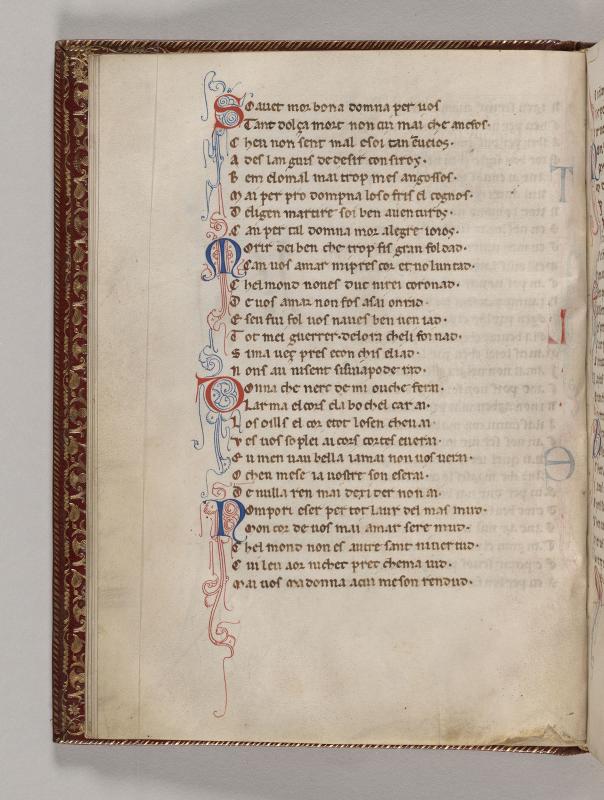 Soauet mor bona domna per uos
Tant dolça mort non cui mai che anc fos.
C heu non sent mal e soi tan
A des languis de desir consiros.
B em elo mal mai trop mes angossos.
M ai per pro dompna lo sofris el cognos.
D eligen martire soi ben auenturos.
C an per tal domna mor alegre ioios.
Morir dei ben che trop fis gran foldad.
Can uos amar mi pres cor et uoluntad.
C hel mond non es duc ni rei coronad.
D e uos amar non fos asai onrad.
E seu fui fol uos naues ben
T ot mei guerrer. de lora cheli fornad.
S ima ueç pres e con chis eliad.
N ons au uisent
Donna che ners de mi ouche ferai.
Larma el cors ela bochel car ai.
L os oills el cor e tot losen cheu ai.
V es uos soplei ai cors cortes euerai.
E u men uau bella iamai non uos uerai.
O cheu mese ia uostre son e serai.
D e nulla ren mai dexider non ai.
Nom pori eser per tot laur del mas mud.
Mon cor de uos mai amar sere mud.
C hel mond non es autre sant ni uertud.
C ui leu aor ni chet pret chema uid.
M ai uos madonna a cui me son rendud.